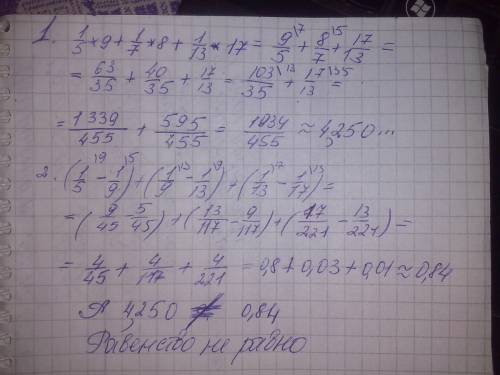 1. 1/5 * 9 + 1/7 * 8 + 1/13 * 17 = 9/5 \7 + 8/7 \5 + 17/13 =
= 63/35 + 40/35 + 17/13 = 103/35 \13 + 17/13 \35 =
= 1339/455 + 595/455 = 1934/455 ≈ 4,250...
2. (1/5 \9 - 1/9 \5) + (1/9 \13 - 1/13 \9) + (1/13 \17 - 1/17 \13) =
= (9/45 - 5/45) + (13/117 - 9/117) + (17/221 - 13/221) =
= 4/45 + 4/117 + 4/221 = 0,8 + 0,03 + 0,01 ≈ 0,84
А 4,250 ≠ 0,84
Равенство не равно